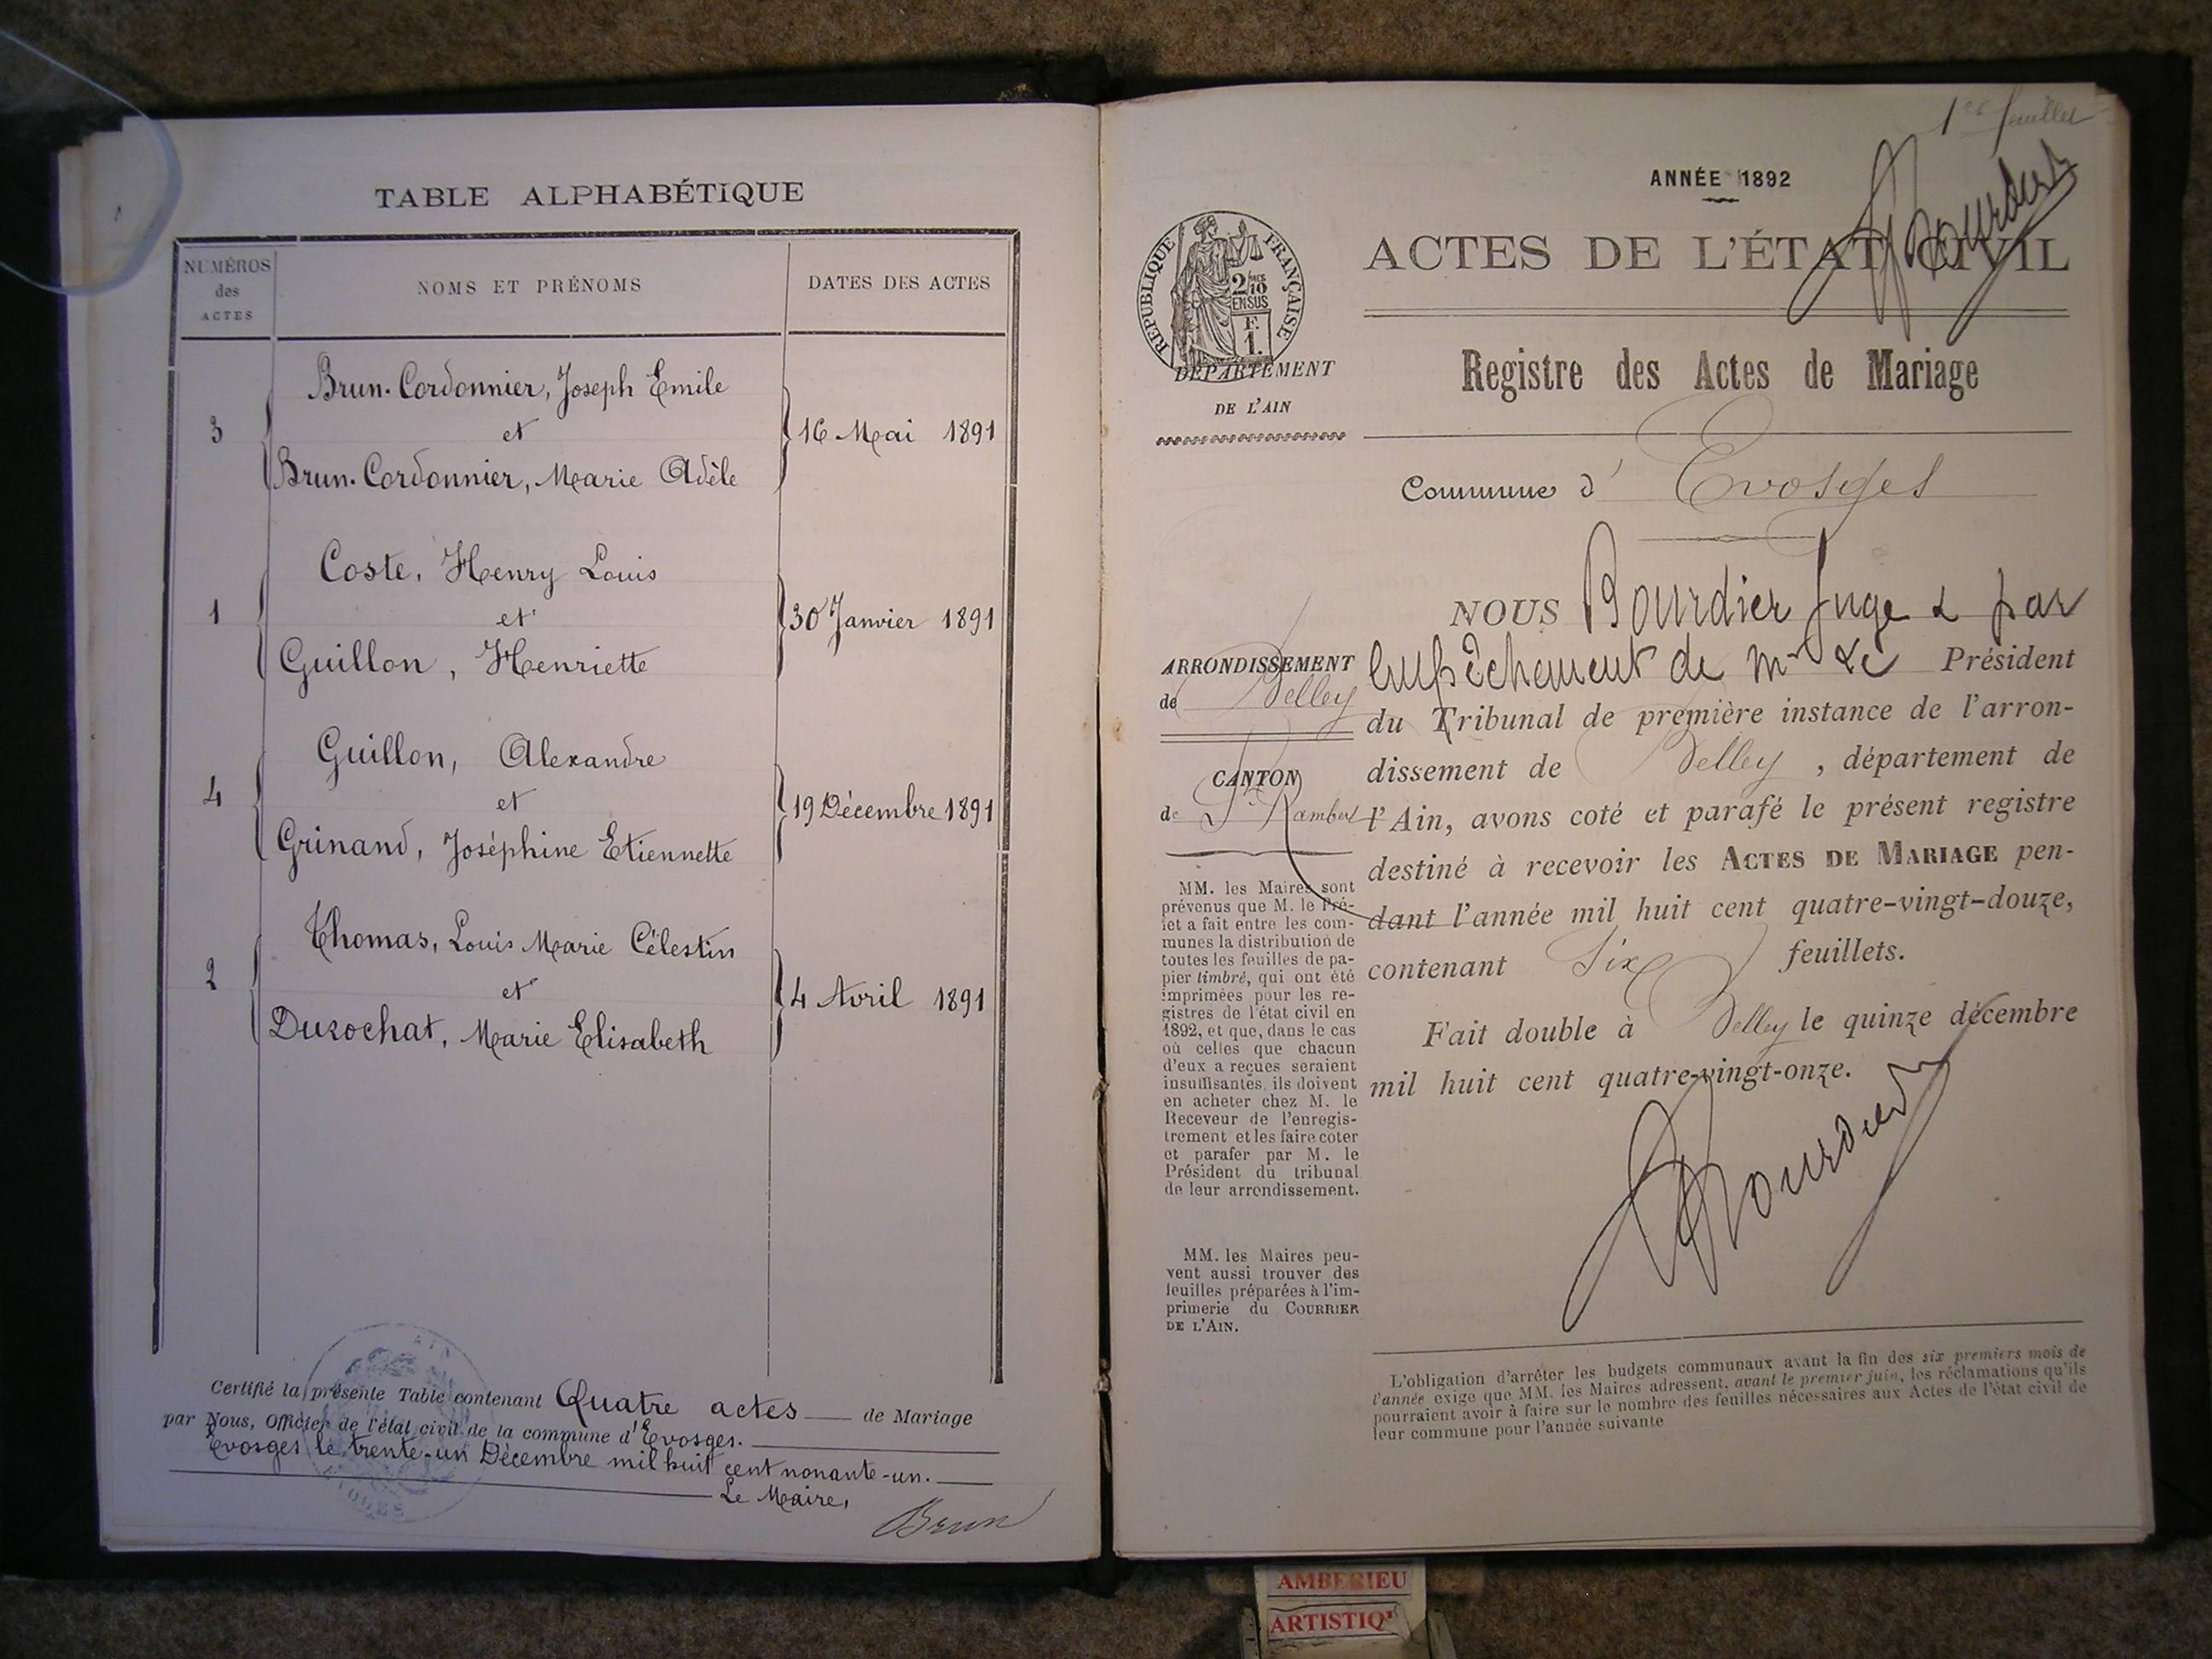 TABLE ALPHABÉTIQUE
NUMÉROS
des
ACTES
NOMS ET PRÉNOMS
DATES DES ACTES
Brun-Cordonnier, Joseph Emile
3
et
16 Mai 1891
Brun-Cordonnier, Marie Adèle
Coste, Henry Louis
1
et
30 Janvier 1891
Guillon, Henriette
Guillon, Alexandre
4
et
19 Décembre 1891
Grinand, Joséphine Etiennette
Thomas, Louis Marie Célestin
2
et
4 Avril 1891
Durochat, Marie Elisabeth
Certifié la présente Table contenant Quatre actes de Mariage
par Nous, Officier de l'état civil de la commune d'Evosges.
Evosges le trente-un Décembre mil huit cent nonante-un.
Le Maire,
Brun
1er feuillet
Bourdier
ANNÉE 1892
RÉPUBLIQUE FRANÇAISE
2/10
EN SUS
F.
1.
ACTES DE L'ÉTAT CIVIL
Registre des Actes de Mariage
DÉPARTEMENT
DE L'AIN
Commune d' Evosges
ARRONDISSEMENT
de Belley
CANTON
de St Rambert
MM. les Maires sont
prévenus que M. le Pré-
fet a fait entre les com-
munes la distribution de
toutes les feuilles de pa-
pier timbré, qui ont été
imprimées pour les re-
gistres de l'état civil en
1892, et que, dans le cas
où celles que chacun
d'eux a reçues seraient
insuffisantes, ils doivent
en acheter chez M. le
Receveur de l'enregis-
trement et les faire coter
et parafer par M. le
Président du tribunal
de leur arrondissement.
MM. les Maires peu-
vent aussi trouver des
feuilles préparées à l'im-
primerie du COURRIER
DE L'AIN.
NOUS Bourdier Juge & par
empêchement de Mr Le Président
du Tribunal de première instance de l'arron-
dissement de Belley, département de
l'Ain, avons coté et parafé le présent registre
destiné à recevoir les ACTES DE MARIAGE pen-
dant l'année mil huit cent quatre-vingt-douze,
contenant Six feuillets.
Fait double à Belley le quinze décembre
mil huit cent quatre-vingt-onze.
Bourdier
L'obligation d'arrêter les budgets communaux avant la fin des six premiers mois de
l'année exige que MM. les Maires adressent, avant le premier juin, les réclamations qu'ils
pourraient avoir à faire sur le nombre des feuilles nécessaires aux Actes de l'état civil de
leur commune pour l'année suivante
AMBERIEU
ARTISTIQ